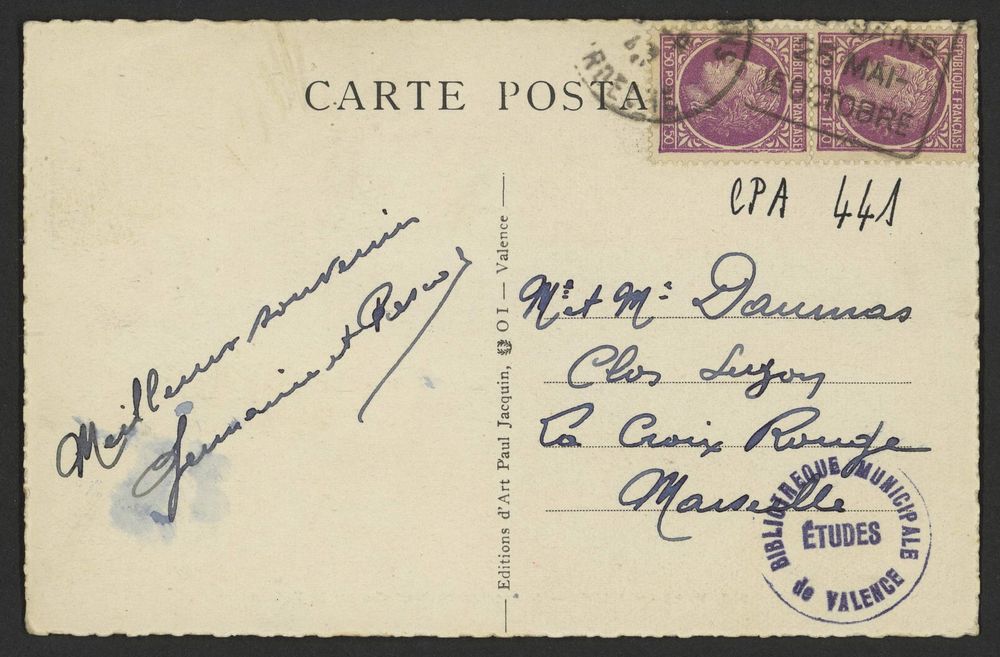 CARTE POSTA
1F50 POSTES
RÉPUBLIQUE FRANÇAISE
1F50
BAINS
25 MAI-
15 OCTOBRE
CPA 441
Meilleurs souvenirs
Germaine et
Editions d'Art Paul Jacquin, OI — Valence
Mr et Me Daumas
Clos
La Croix Rouge
Marseille
BIBLIOTHEQUE MUNICIPALE
ÉTUDES
de VALENCE